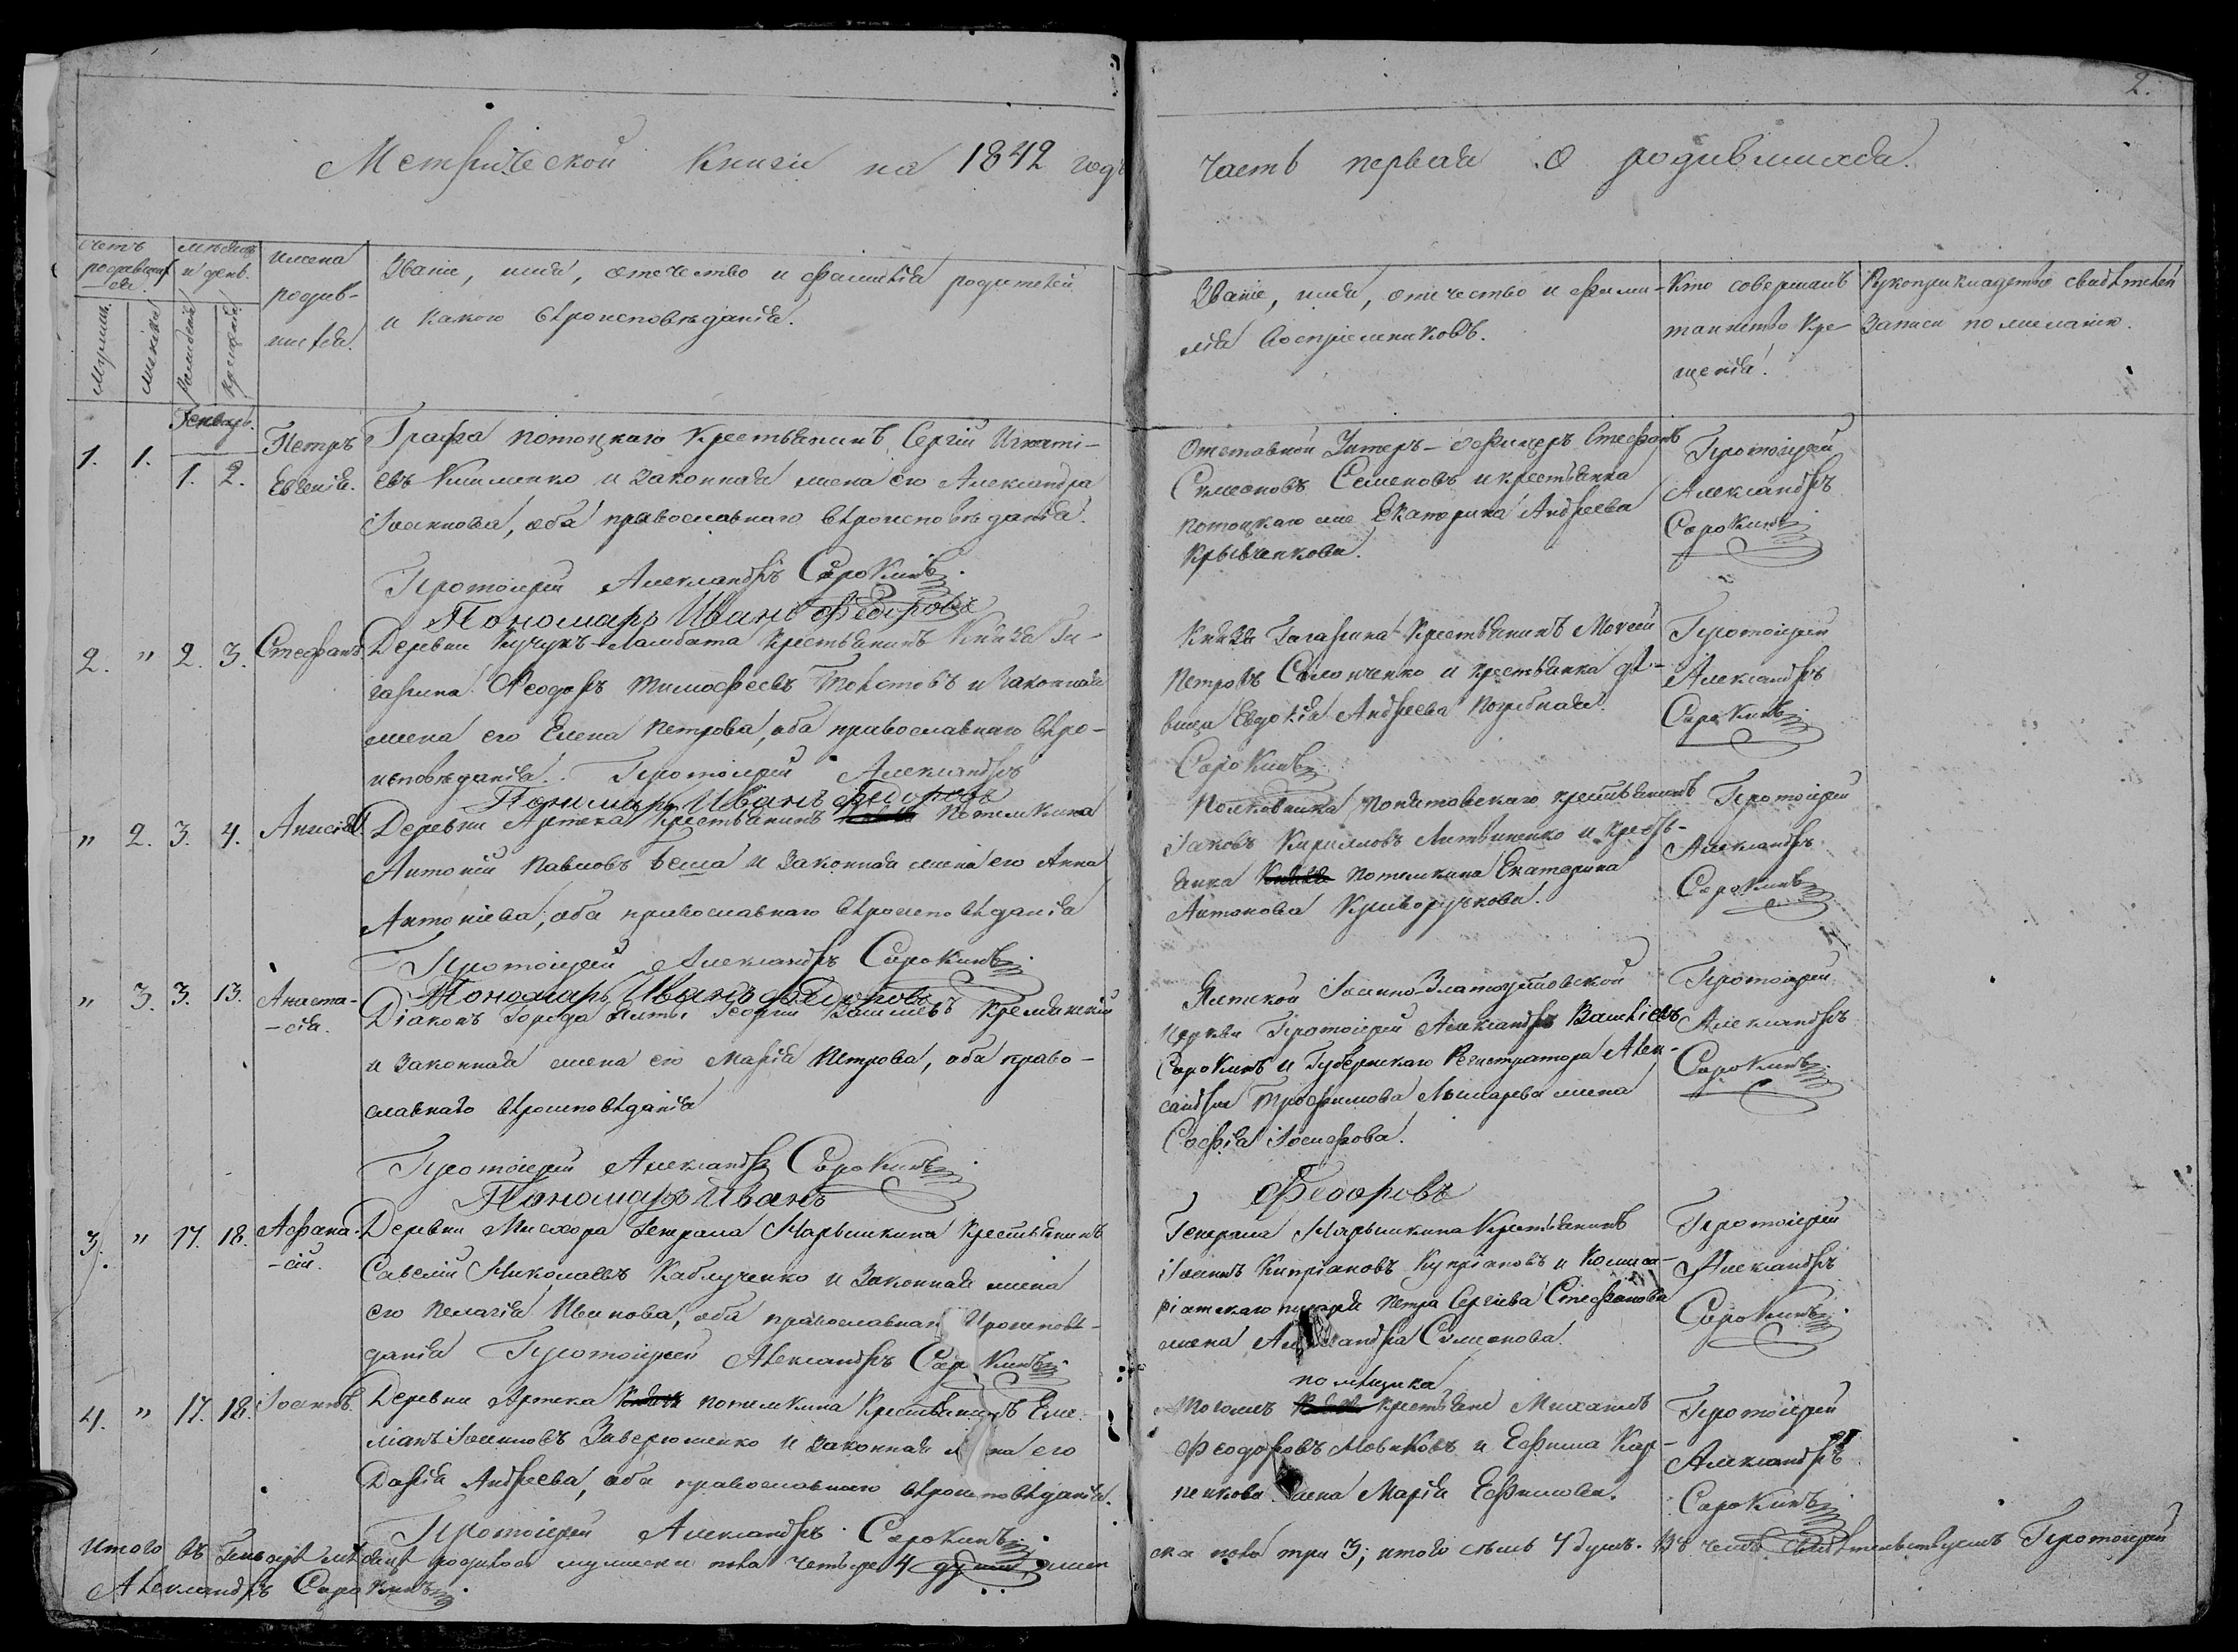 2.
Метрической Книги на 1842 годъ
часть первая о родившихся.
счетъ родившихся
мѣсяцъ и день.
имена родившихся.
Званіе, имя, отчество и фамилія родителей
и какого вѣроисповѣданія.
Званіе, имя, отчество и фами-
лія воспріемниковъ.
Кто совершалъ
таинство кре-
щенія.
Рукоприкладство свидѣтелей
записи по желанію.
мужеск.
женска
рожденія
крещенія
Генварь.
1. 1. 1. 2. Петръ
Евгенія.
Графа Потоцкаго крестьянинъ Сергій Игнаті-
евъ Клименко и законная жена его Александра
Іоаннова, оба православнаго вѣроисповѣданія.
Протоіерей Александръ Сорокинъ
Пономарь Иванъ Федоровъ
Отставной Унтеръ-офицеръ Стефанъ
Симеоновъ Семеновъ и крестьянка
Потоцкаго Екатерина Андреева
Крывченкова.
Протоіерей
Александръ
Сорокинъ
2. " 2. 3. Стефанъ.
Деревни Кучукъ-Ламбата крестьянинъ Князя Га-
гарина Феодоръ Тимофеевъ Толстовъ и законная
жена его Елена Петрова, оба православнаго вѣро-
исповѣданія. Протоіерей Александръ
Сорокинъ
Пономарь Иванъ Федоровъ
Князя Гагарина крестьянинъ Моисей
Петровъ Симонченко и крестьянка дѣ-
вица Евдокія Андреева Погребная.
Протоіерей
Александръ
Сорокинъ
" 2. 3. 4. Анисія.
Деревни Артека крестьянинъ Потемкина
Антоній Павловъ Беша и законная жена его Анна
Антоніева, оба православнаго вѣроисповѣданія
Протоіерей Александръ Сорокинъ
Пономарь Иванъ Федоровъ
Полковника Понятовскаго крестьянинъ
Іаковъ Кирилловъ Литвиненко и кресть-
янка Потемкина Екатерина
Антонова Криворучкова.
Протоіерей
Александръ
Сорокинъ
" 3. 3. 13. Анаста-
-сія.
Діаконъ города Ялты Георгій Василіевъ Кремянскій
и законная жена его Марія Петрова, оба право-
славнаго вѣроисповѣданія
Протоіерей Александръ Сорокинъ
Пономарь Иванъ Федоровъ
Ялтской Іоанно-Златоустовской
церкви Протоіерей Александръ Василіевъ
Сорокинъ и Губернскаго Регистратора Алек-
сандра Трофимова жена
Софія Іосифова.
Протоіерей
Александръ
Сорокинъ
3. " 17. 18. Афана-
-сій.
Деревни Мисхора Генерала Нарышкина крестьянинъ
Савелій Николаевъ Каблученко и законная жена
его Пелагія Иванова, оба православнаго вѣроисповѣ-
данія Протоіерей Александръ Сорокинъ
Генерала Нарышкина крестьянинъ
Іоаннъ Кипріановъ Купріановъ и Комиса-
ріатскаго писаря Петра Сергіева Стефанова
жена Александра Симеонова.
Протоіерей
Александръ
Сорокинъ
4. " 17. 18. Іоаннъ.
Деревни Артека Потемкина крестьянинъ Еме-
ліанъ Іоанновъ Заверюшенко и законная жена его
Дарія Андреева, оба православнаго вѣроисповѣданія.
Протоіерей Александръ Сорокинъ
помѣщика
Тогожъ крестьяне Михаилъ
Феодоровъ Новиковъ и Ефима Кар-
пенкова жена Марія Ефимова.
Протоіерей
Александръ
Сорокинъ
Итого въ Генварѣ мѣсяцѣ родилось мужеска пола четыре 4 женс
ска пола три 3; итого семь 7 душъ. Въ чемъ свидѣтельствуетъ Протоіерей
Александръ Сорокинъ